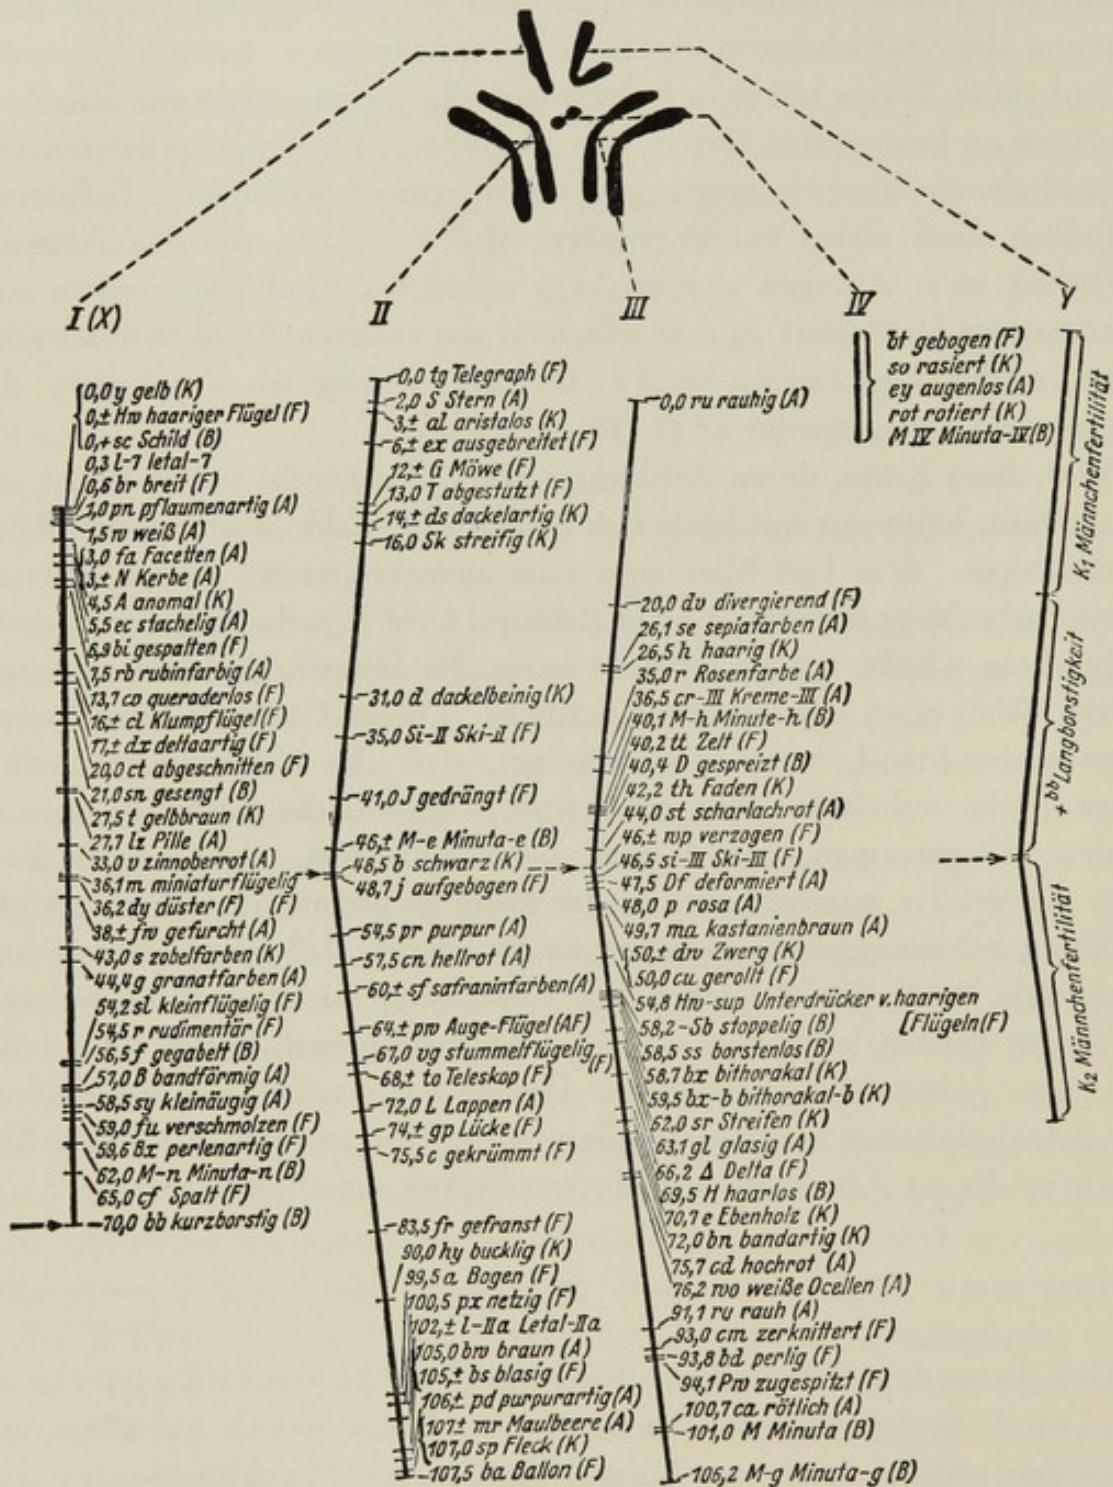 I (X)
0,0 y gelb (K)
0,± Hw haariger Flügel (F)
0,+ sc Schild (B)
0,3 l-7 letal-7
0,6 br breit (F)
1,0 pn pflaumenartig (A)
1,5 w weiß (A)
3,0 fa Facetten (A)
3,± N Kerbe (A)
4,5 A anomal (K)
5,5 ec stachelig (A)
6,9 bi gespalten (F)
7,5 rb rubinfarbig (A)
13,7 cv queraderlos (F)
16,± cl Klumpflügel (F)
17,± dx deltaartig (F)
20,0 ct abgeschnitten (F)
21,0 sn gesengt (B)
27,5 t gelbbraun (K)
27,7 lz Pille (A)
33,0 v zinnoberrot (A)
36,1 m miniaturflügelig
36,2 dy düster (F) (F)
38,± fw gefurcht (A)
43,0 s zobelfarben (K)
44,4 g granatfarben (A)
54,2 sl kleinflügelig (F)
54,5 r rudimentär (F)
56,5 f gegabelt (B)
57,0 B bandförmig (A)
58,5 sy kleinäugig (A)
59,0 fu verschmolzen (F)
59,6 Bx perlenartig (F)
62,0 M-n Minuta-n (B)
65,0 cf Spalt (F)
70,0 bb kurzborstig (B)
II
0,0 tg Telegraph (F)
2,0 S Stern (A)
3,± al aristalos (K)
6,± ex ausgebreitet (F)
12,± G Möwe (F)
13,0 T abgestutzt (F)
14,± ds dackelartig (K)
16,0 Sk streifig (K)
31,0 d dackelbeinig (K)
35,0 Si-II Ski-II (F)
41,0 J gedrängt (F)
46,± M-e Minuta-e (B)
48,5 b schwarz (K)
48,7 j aufgebogen (F)
54,5 pr purpur (A)
57,5 cn hellrot (A)
60,± sf safraninfarben (A)
64,± pw Auge-Flügel (AF)
67,0 vg stummelflügelig (F)
68,± to Teleskop (F)
72,0 L Lappen (A)
74,± gp Lücke (F)
75,5 c gekrümmt (F)
83,5 fr gefranst (F)
90,0 hy bucklig (K)
99,5 a Bogen (F)
100,5 px netzig (F)
102,± l-IIa Letal-IIa
105,0 bw braun (A)
105,± bs blasig (F)
106,± pd purpurartig (A)
107± mr Maulbeere (A)
107,0 sp Fleck (K)
107,5 ba Ballon (F)
III
0,0 ru rauhig (A)
20,0 dv divergierend (F)
26,1 se sepiafarben (A)
26,5 h haarig (K)
35,0 r Rosenfarbe (A)
36,5 cr-III Kreme-III (A)
40,1 M-h Minute-h (B)
40,2 tt Zelt (F)
40,4 D gespreizt (B)
42,2 th Faden (K)
44,0 st scharlachrot (A)
46,± wp verzogen (F)
46,5 si-III Ski-III (F)
47,5 Df deformiert (A)
48,0 p rosa (A)
49,7 ma kastanienbraun (A)
50,± dw Zwerg (K)
50,0 cu gerollt (F)
54,8 Hw-sup Unterdrücker v. haarigen
[Flügeln (F)
58,2-Sb stoppelig (B)
58,5 ss borstenlos (B)
58,7 bx bithorakal (K)
59,5 bx-b bithorakal-b (K)
62,0 sr Streifen (K)
63,1 gl glasig (A)
66,2 Δ Delta (F)
69,5 H haarlos (B)
70,7 e Ebenholz (K)
72,0 bn bandartig (K)
75,7 cd hochrot (A)
76,2 wo weiße Ocellen (A)
91,1 ru rauh (A)
93,0 cm zerknittert (F)
93,8 bd perlig (F)
94,1 Pw zugespitzt (F)
100,7 ca rötlich (A)
101,0 M Minuta (B)
106,2 M-g Minuta-g (B)
IV
bt gebogen (F)
so rasiert (K)
ey augenlos (A)
rot rotiert (K)
M IV Minuta-IV (B)
Y
K1 Männchenfertilität
+bb Langborstigkeit
K2 Männchenfertilität